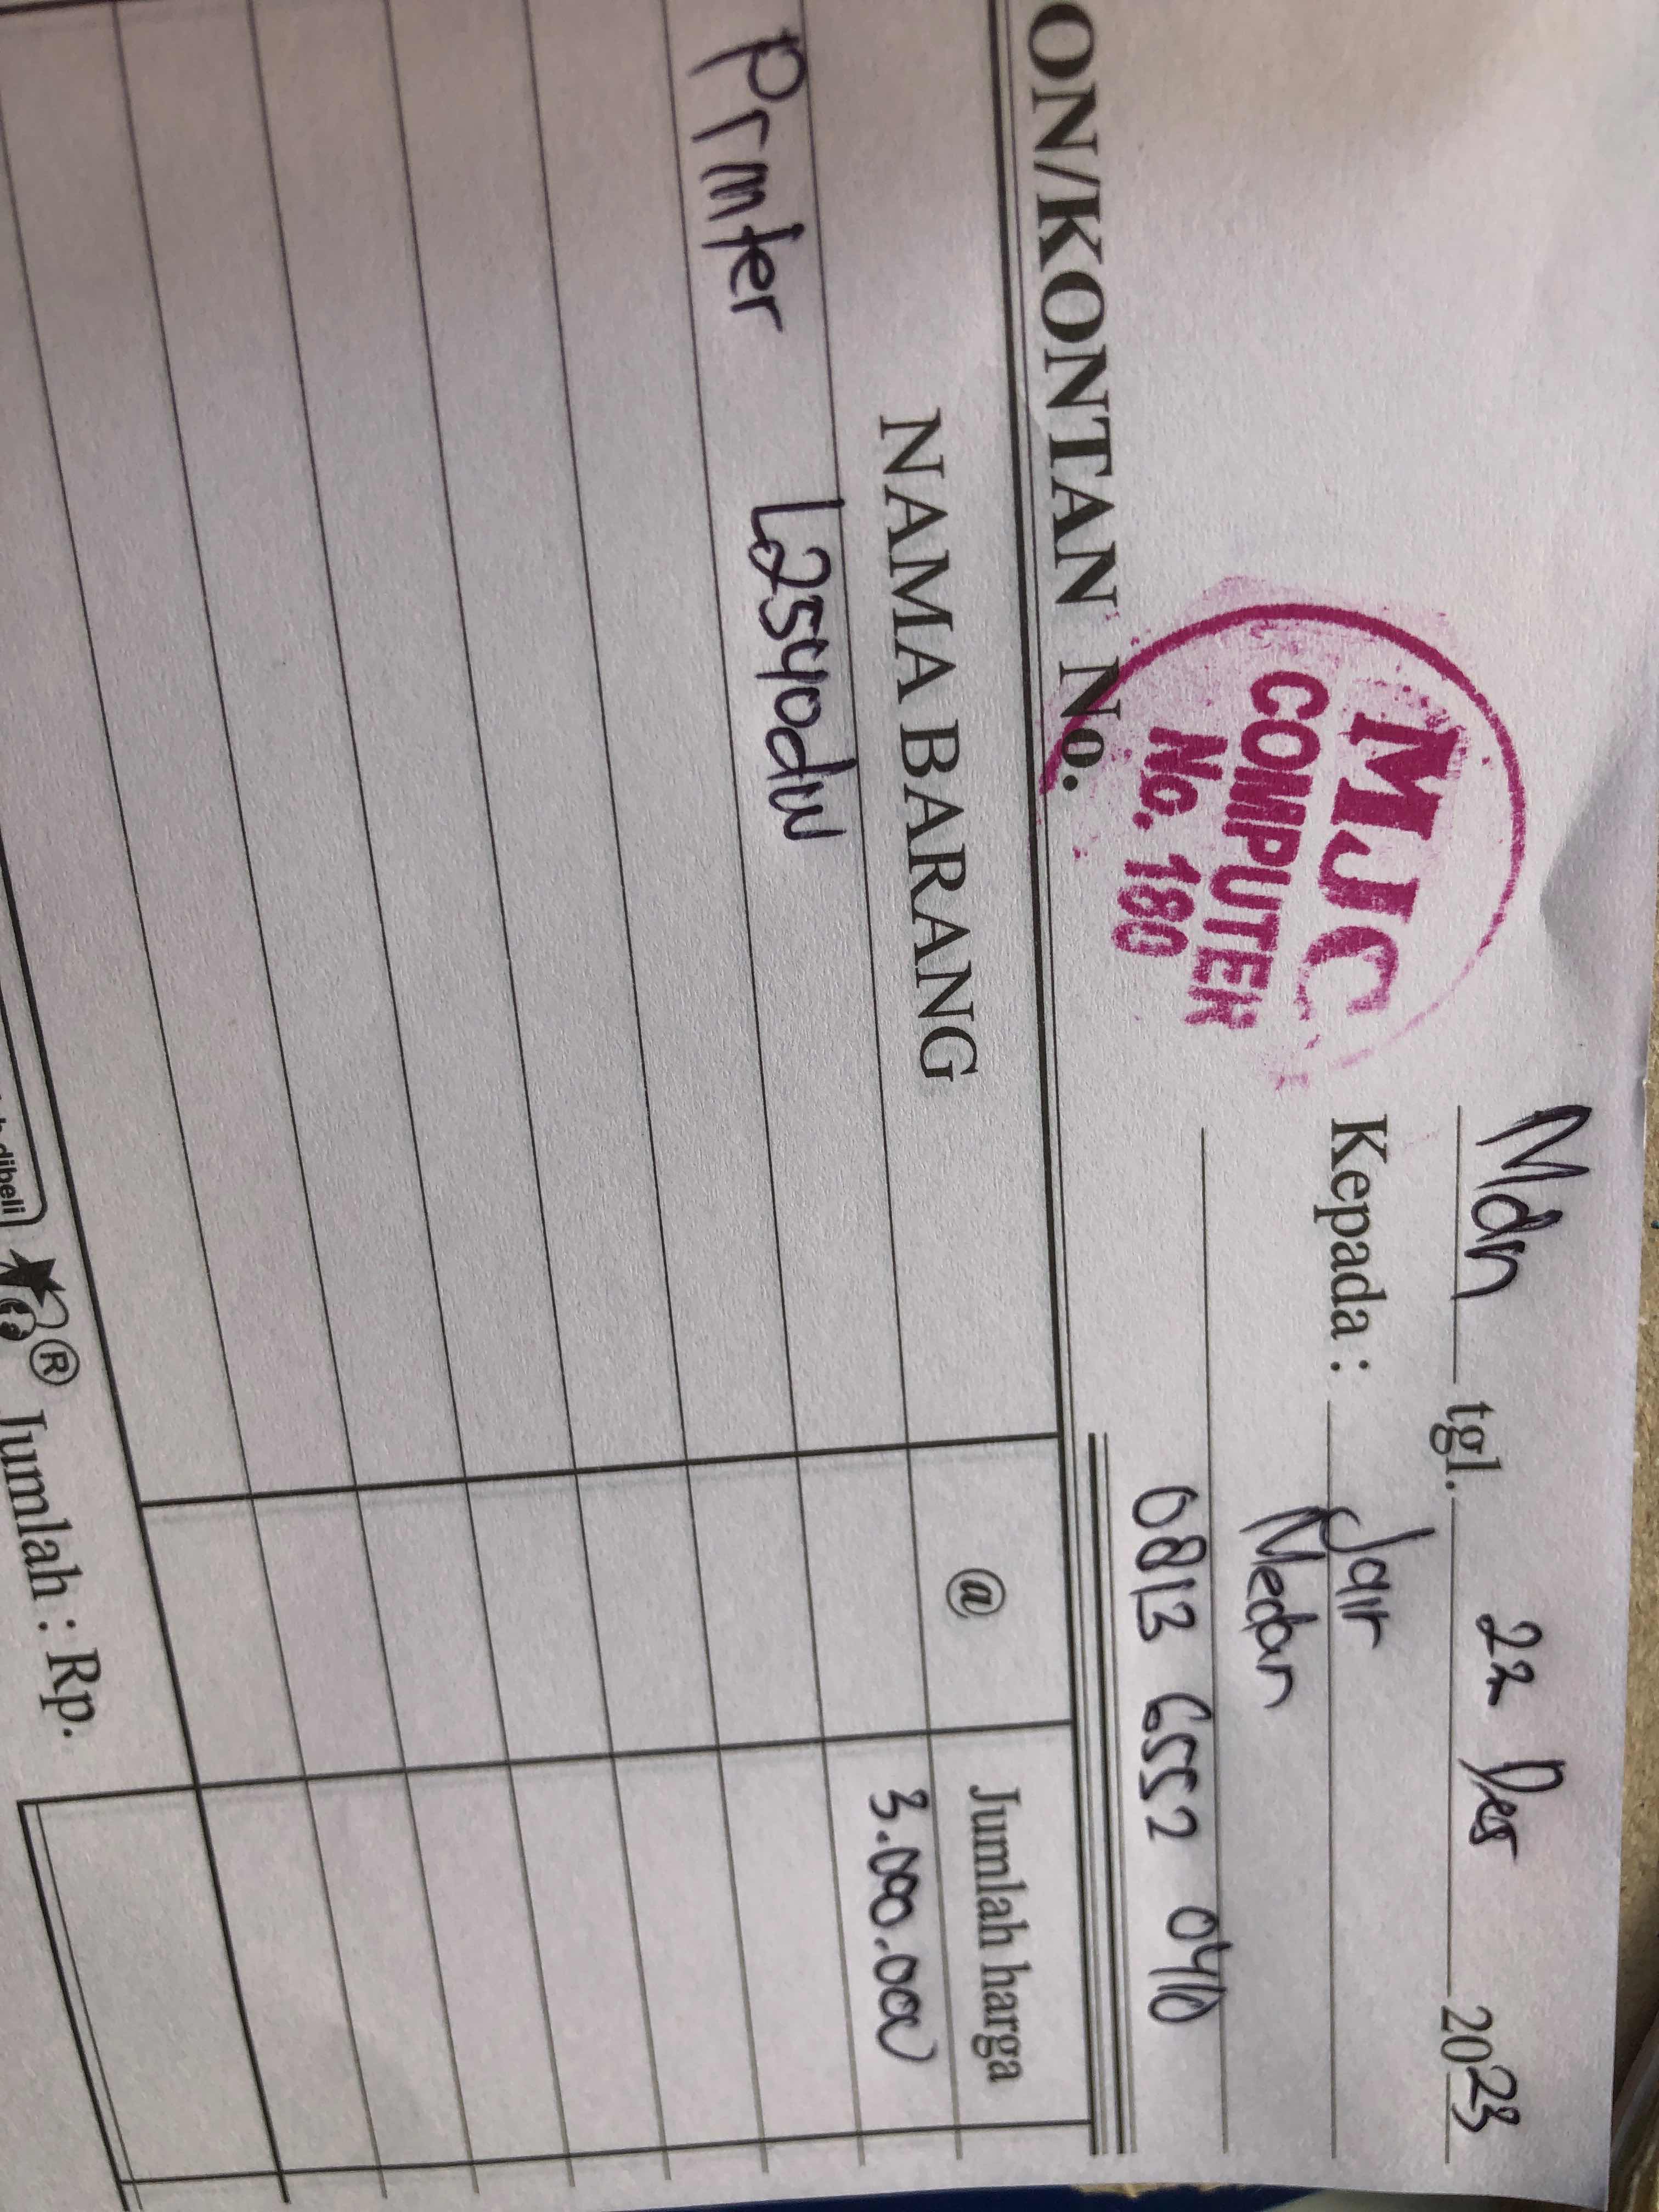 Mdn tgl. 22 Des 2023
Kepada : Jair
Medan
0813 6552 0410
MJC
COMPUTER
No. 180
ON/KONTAN No.
NAMA BARANG @ Jumlah harga
Printer L2540dw 3.000.000
dibeli
® Jumlah : Rp.